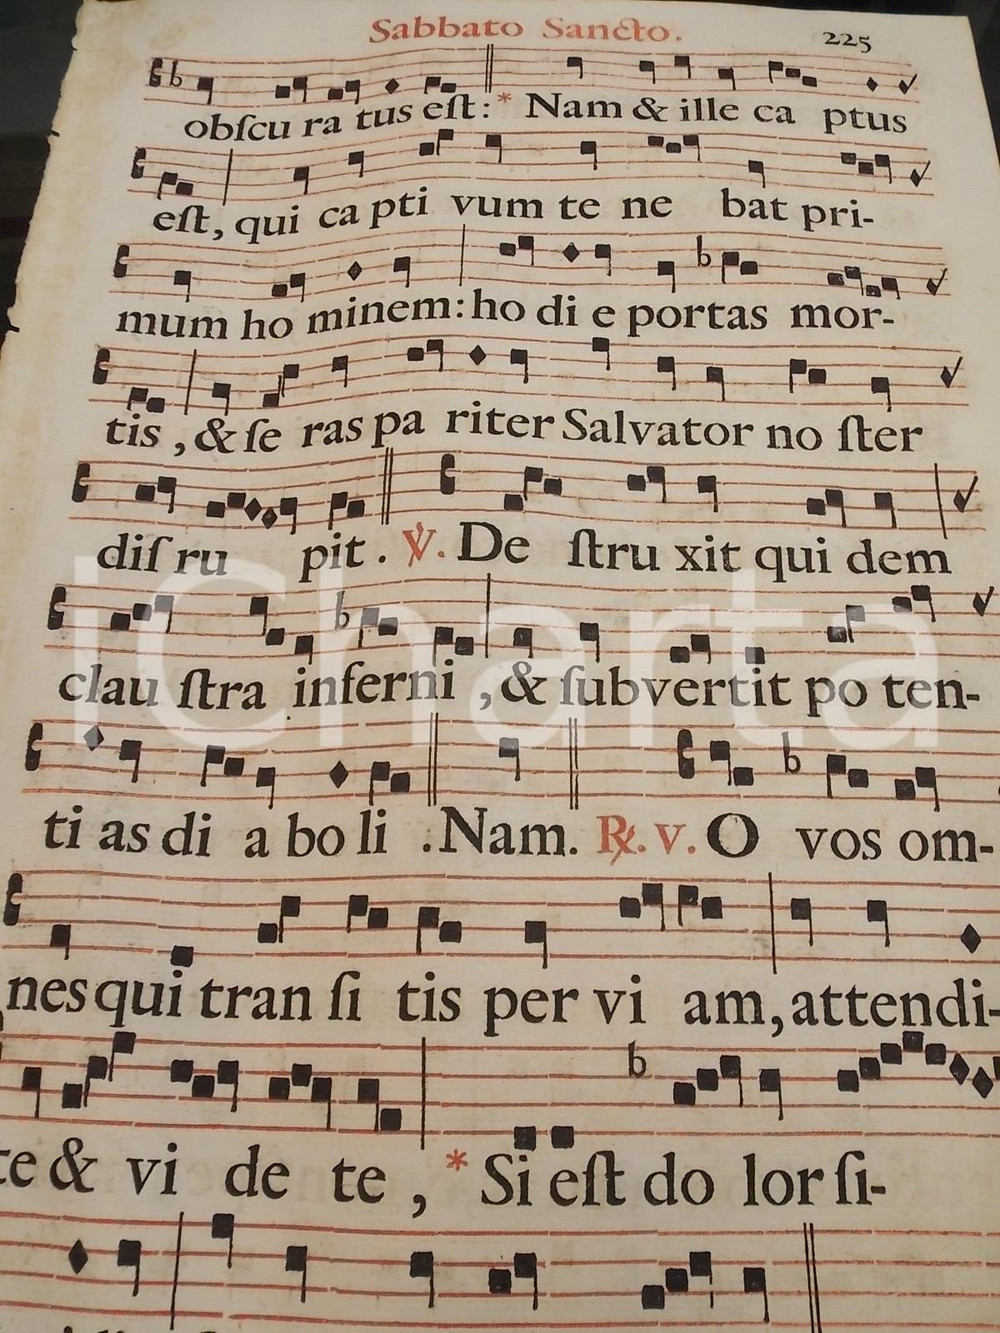 Sabbato Sancto. 225
obſcu ra tus eſt:* Nam & ille ca ptus
eſt, qui ca pti vum te ne bat pri-
mum ho minem: ho di e portas mor-
tis, & ſe ras pa riter Salvator no ſter
diſ ru pit. ℣. De ſtru xit qui dem
clau ſtra inferni, & ſubvertit po ten-
ti as di a bo li. Nam. ℟. v. O vos om-
nes qui tran ſi tis per vi am, attendi-
te & vi de te, * Si eſt do lor ſi-
iCharta